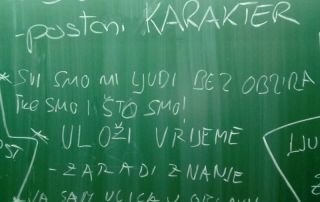 -postani KARAKTER
* SVI SMO MI LJUDI BEZ OBZIRA
TKO SMO I ŠTO SMO!
* ULOŽI VRIJEME
LJU
- ZARADI ZNANJE